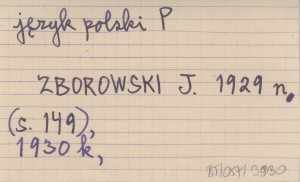 język polski P
ZBOROWSKI J. 1929 n.
(s. 149),
1930 k,
BJ/057/3930